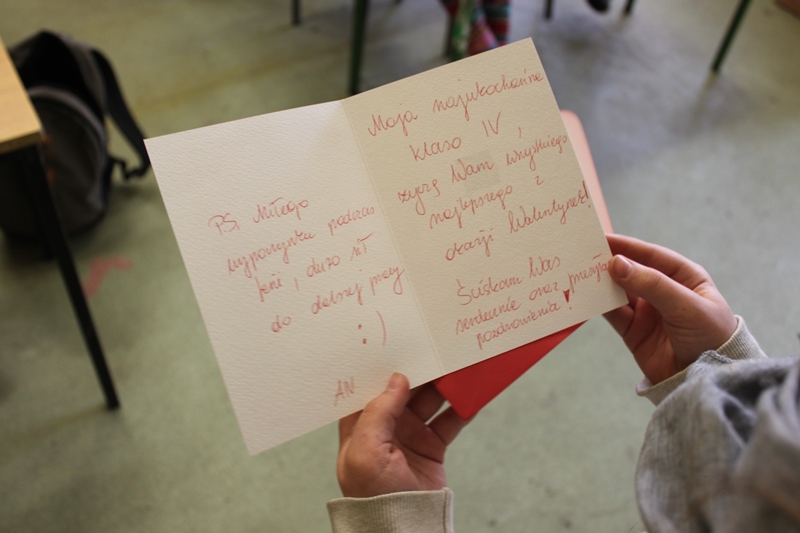 PS. Miłego
wypoczynku podczas
ferii i dużo sił
do dalszej pracy
:)
AN
Moja najukochańsza
klaso IV
życzę Wam wszystkiego
najlepszego z
okazji Walentynek!
Ściskam Was
serdecznie oraz przesyłam
pozdrowienia!